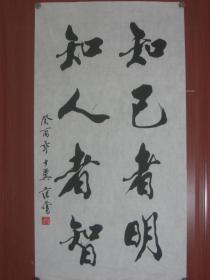 知己者明
知人者智
癸酉年